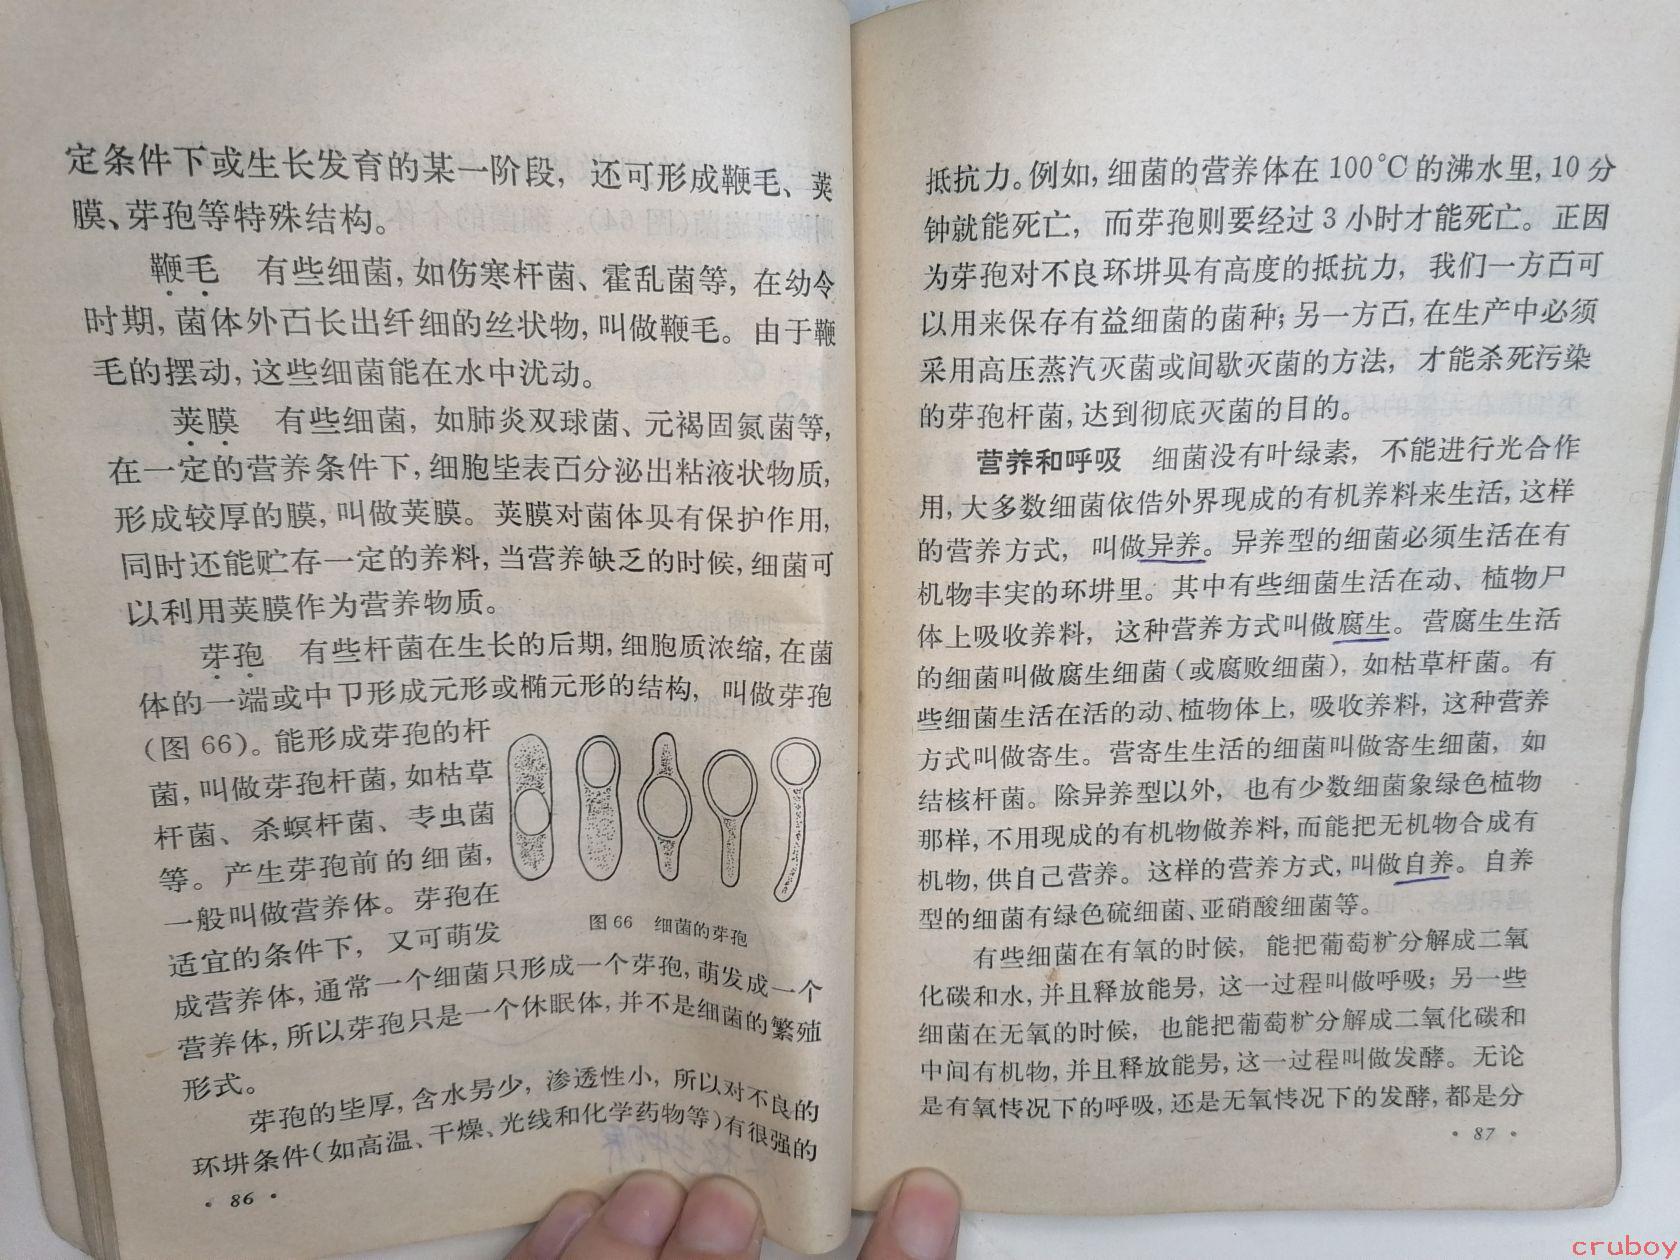 定条件下或生长发育的某一阶段，还可形成鞭毛、荚
膜、芽孢等特殊结构。
鞭毛　有些细菌，如伤寒杆菌、霍乱菌等，在幼令
时期，菌体外面长出纤细的丝状物，叫做鞭毛。由于鞭
毛的摆动，这些细菌能在水中沋动。
荚膜　有些细菌，如肺炎双球菌、元褐固氮菌等，
在一定的营养条件下，细胞坒表面分泌出粘液状物质，
形成较厚的膜，叫做荚膜。荚膜对菌体具有保护作用，
同时还能贮存一定的养料，当营养缺乏的时候，细菌可
以利用荚膜作为营养物质。
芽孢　有些杆菌在生长的后期，细胞质浓缩，在菌
体的一端或中卩形成元形或椭元形的结构，叫做芽孢
（图 66）。能形成芽孢的杆
菌，叫做芽孢杆菌，如枯草
杆菌、杀螟杆菌、青虫菌
等。产生芽孢前的细菌，
一般叫做营养体。芽孢在
适宜的条件下，又可萌发
图 66　细菌的芽孢
成营养体，通常一个细菌只形成一个芽孢，萌发成一个
营养体，所以芽孢只是一个休眠体，并不是细菌的繁殖
形式。
芽孢的坒厚，含水量少，渗透性小，所以对不良的
环境条件（如高温、干燥、光线和化学药物等）有很强的
· 86 ·
抵抗力。例如，细菌的营养体在 100℃ 的沸水里，10 分
钟就能死亡，而芽孢则要经过 3 小时才能死亡。正因
为芽孢对不良环境具有高度的抵抗力，我们一方面可
以用来保存有益细菌的菌种；另一方面，在生产中必须
采用高压蒸汽灭菌或间歇灭菌的方法，才能杀死污染
的芽孢杆菌，达到彻底灭菌的目的。
营养和呼吸　细菌没有叶绿素，不能进行光合作
用，大多数细菌依俈外界现成的有机养料来生活，这样
的营养方式，叫做异养。异养型的细菌必须生活在有
机物丰实的环境里。其中有些细菌生活在动、植物尸
体上吸收养料，这种营养方式叫做腐生。营腐生生活
的细菌叫做腐生细菌（或腐败细菌），如枯草杆菌。有
些细菌生活在活的动、植物体上，吸收养料，这种营养
方式叫做寄生。营寄生生活的细菌叫做寄生细菌，如
结核杆菌。除异养型以外，也有少数细菌象绿色植物
那样，不用现成的有机物做养料，而能把无机物合成有
机物，供自己营养。这样的营养方式，叫做自养。自养
型的细菌有绿色硫细菌、亚硝酸细菌等。
有些细菌在有氧的时候，能把葡萄糖分解成二氧
化碳和水，并且释放能量，这一过程叫做呼吸；另一些
细菌在无氧的时候，也能把葡萄糖分解成二氧化碳和
中间有机物，并且释放能量，这一过程叫做发酵。无论
是有氧情况下的呼吸，还是无氧情况下的发酵，都是分
· 87 ·
cruboy